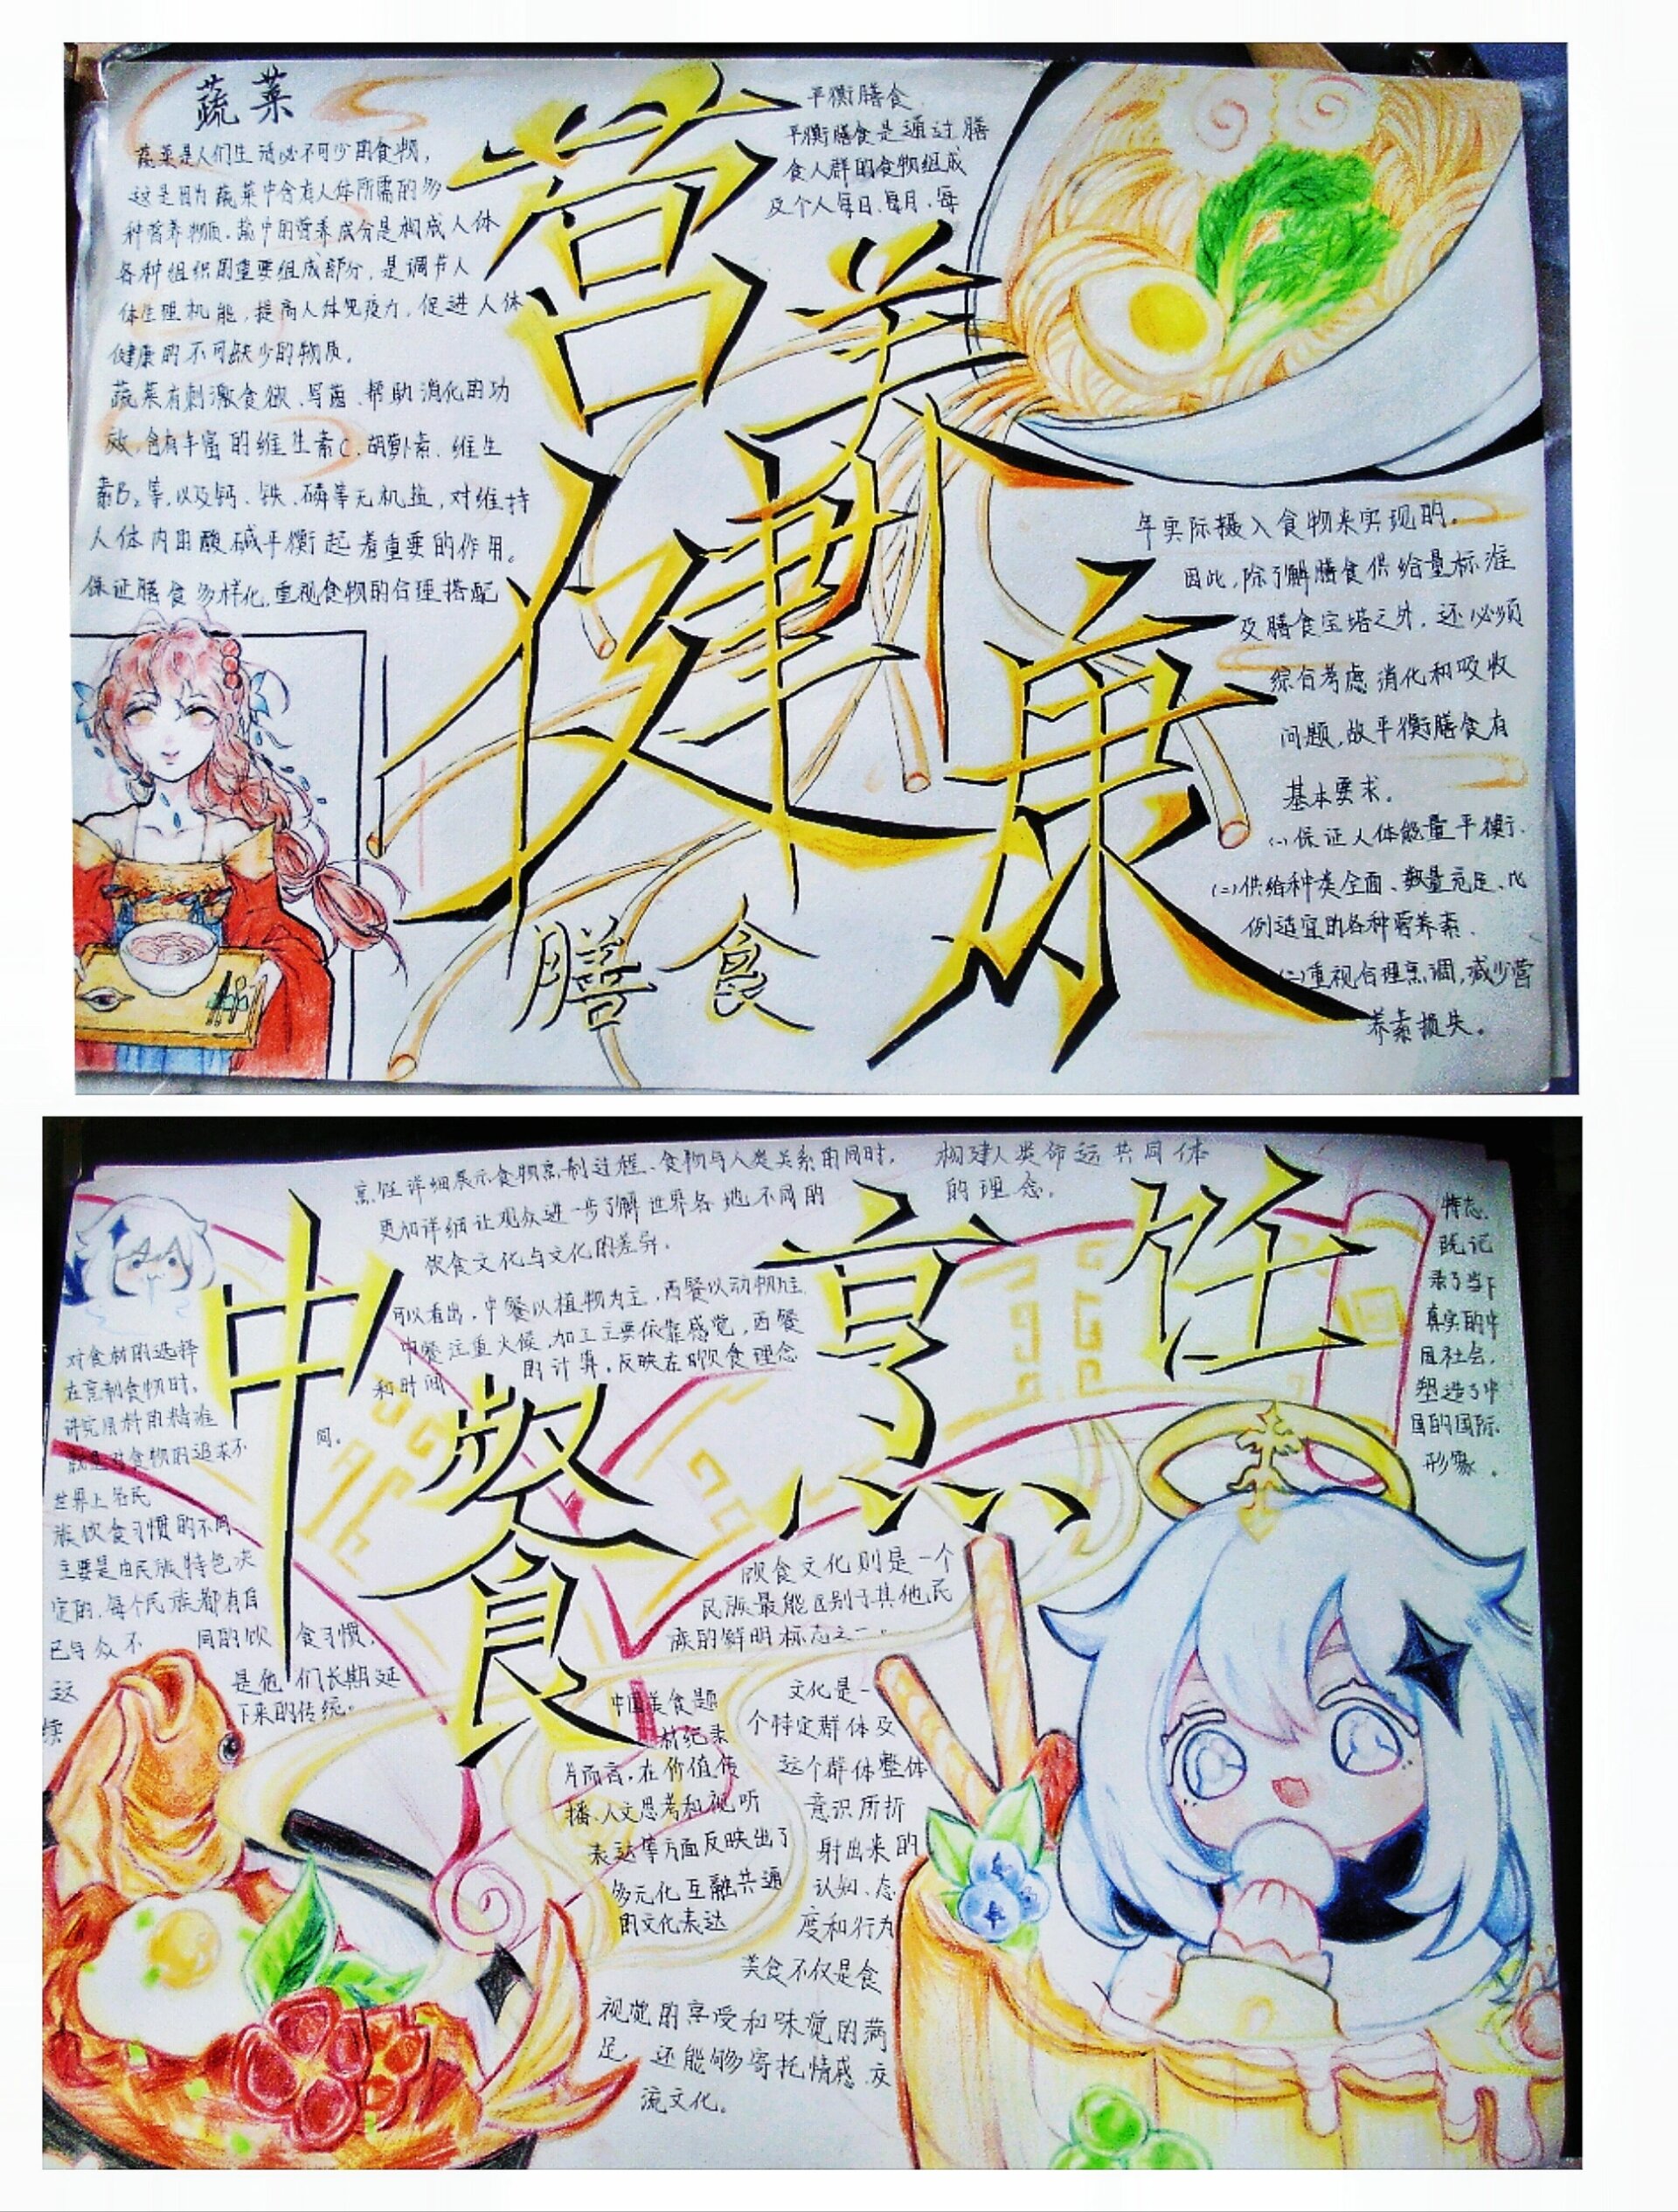 蔬菜
蔬菜是人们生活必不可少的食物，
这是因为蔬菜中含有人体所需的多
种营养物质。蔬中的营养成分是构成人体
各种组织的重要组成部分，是调节人
体生理机能，提高人体免疫力，促进人体
健康的不可缺少的物质。
蔬菜有刺激食欲、写菌、帮助消化的功
效，含有丰富的维生素C、胡萝卜素、维生
素B₂等，以及钙、铁、磷等无机盐，对维持
人体内的酸碱平衡起着重要的作用。
保证膳食多样化，重视食物的合理搭配
营养
健康
膳食
平衡膳食
平衡膳食是通过膳
食人群的食物组成
及个人每日、每月、每
年实际摄入食物来实现的。
因此，除了解膳食供给量标准
及膳食宝塔之外，还必须
综合考虑消化和吸收
问题，故平衡膳食有
基本要求。
(一)保证人体能量平衡、
(二)供给种类全面、数量充足、比
例适宜的各种营养素、
(三)重视合理烹调，减少营
养素损失。
烹饪详细展示食物烹制过程、食物与人类关系的同时，
更加详细让观众进一步了解世界各地不同的
饮食文化与文化的差异。
构建人类命运共同体
的理念。
中餐烹饪
可以看出，中餐以植物为主，西餐以动物为主
中餐注重火候，加工主要依靠感觉，西餐
的计算，反映在饮食理念
和时间
同。
对食材的选择
在烹制食物时，
讲究原料的精准
就是对食物的追求不
世界上各民
族饮食习惯的不同
主要是由民族特色决
定的，每个民族都有自
己与众不同的饮食习惯，
这是他们长期延
续下来的传统。
特志、
既记
录了当下
真实的中
国社会，
塑造了中
国的国际
形象。
饮食文化则是一个
民族最能区别于其他民
族的鲜明标志之一。
中国美食题
材纪录
片而言，在价值传
播、人文思考和视听
表达等方面反映出了
多元化互融共通
的文化表达
文化是一
个特定群体及
这个群体整体
意识所折
射出来的
认知、态
度和行为
美食不仅是食
视觉的享受和味觉的满
足，还能够寄托情感、交
流文化。